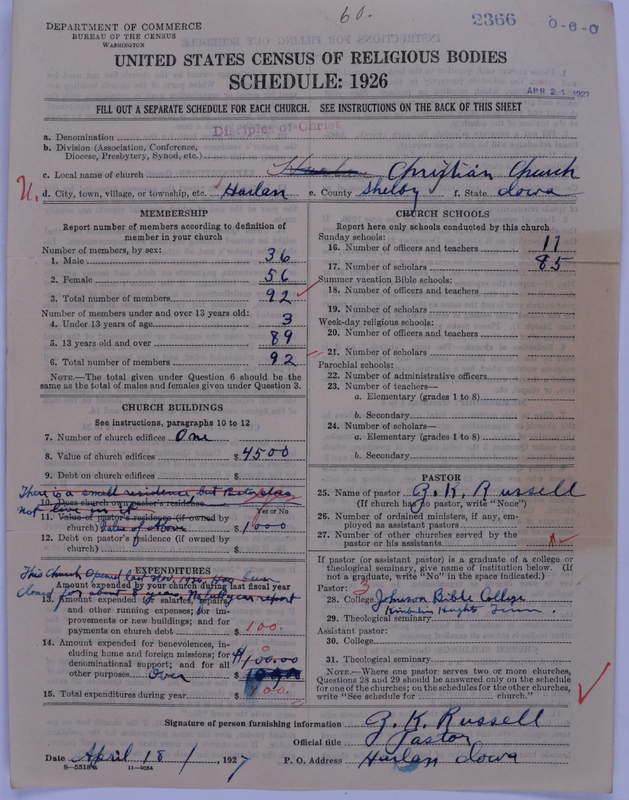 60.
2366 0-6-0
DEPARTMENT OF COMMERCE
BUREAU OF THE CENSUS
WASHINGTON
UNITED STATES CENSUS OF RELIGIOUS BODIES
SCHEDULE: 1926
APR 21 1927
FILL OUT A SEPARATE SCHEDULE FOR EACH CHURCH. SEE INSTRUCTIONS ON THE BACK OF THIS SHEET
a. Denomination Disciples of Christ
b. Division (Association, Conference, Diocese, Presbytery, Synod, etc.)
c. Local name of church Harlan Christian Church
d. City, town, village, or township, etc. Harlan e. County Shelby f. State Iowa
MEMBERSHIP
Report number of members according to definition of member in your church
Number of members, by sex:
1. Male 36
2. Female 56
3. Total number of members 92
Number of members under and over 13 years old:
4. Under 13 years of age 3
5. 13 years old and over 89
6. Total number of members 92
NOTE.—The total given under Question 6 should be the same as the total of males and females given under Question 3.
CHURCH BUILDINGS
See instructions, paragraphs 10 to 12
7. Number of church edifices One
8. Value of church edifices $4500
9. Debt on church edifices $
There is a small residence, but Pastor does
10. Does church own pastor's residence
not live in it Yes or No
11. Value of pastor's residence (if owned by church) Value of above $1000
12. Debt on pastor's residence (if owned by church) $
EXPENDITURES
This Church Opened last Nov. 1926. Has been
Amount expended by your church during last fiscal year
closed for about 8 years. No full year report
13. Amount expended for salaries, repairs, and other running expenses; for improvements or new buildings; and for payments on church debt $100.
14. Amount expended for benevolences, including home and foreign missions; for denominational support; and for all other purposes Over $100.00
15. Total expenditures during year $
CHURCH SCHOOLS
Report here only schools conducted by this church
Sunday schools:
16. Number of officers and teachers 11
17. Number of scholars 85
Summer vacation Bible schools:
18. Number of officers and teachers
19. Number of scholars
Week-day religious schools:
20. Number of officers and teachers
21. Number of scholars
Parochial schools:
22. Number of administrative officers
23. Number of teachers—
a. Elementary (grades 1 to 8)
b. Secondary
24. Number of scholars—
a. Elementary (grades 1 to 8)
b. Secondary
PASTOR
25. Name of pastor G. K. Russell
(If church has no pastor, write "None")
26. Number of ordained ministers, if any, employed as assistant pastors
27. Number of other churches served by the pastor or his assistants
If pastor (or assistant pastor) is a graduate of a college or theological seminary, give name of institution below. (If not a graduate, write "No" in the space indicated.)
Pastor: 3
28. College Johnson Bible College
Kimberlin Heights Tenn.
29. Theological seminary
Assistant pastor:
30. College
31. Theological seminary
NOTE.—Where one pastor serves two or more churches, Questions 28 and 29 should be answered only on the schedule for one of the churches; on the schedules for the other churches, write "See schedule for church."
Signature of person furnishing information G. K. Russell
Official title Pastor
Date April 18, 1927 P. O. Address Harlan Iowa
8—5518a 11—9084